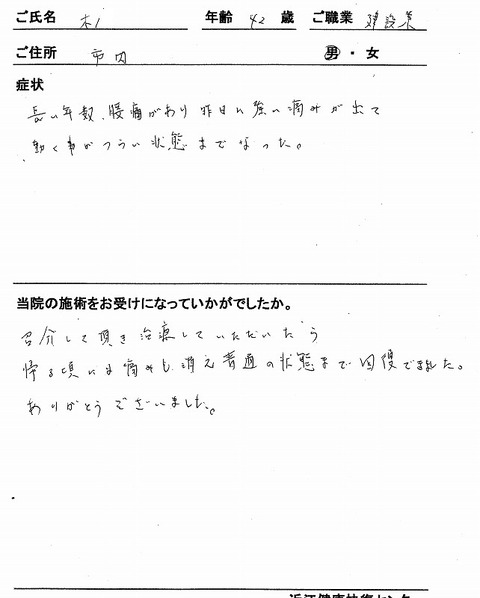 ご氏名 年齢 42 歳 ご職業 建設業
ご住所 市内 男・女
症状
長い年数、腰痛があり昨日に強い痛みが出て
動く事がつらい状態までなった。
当院の施術をお受けになっていかがでしたか。
紹介して頂き治療していただいたら
帰る頃には痛みも消え普通の状態まで回復できました。
ありがとうございました。